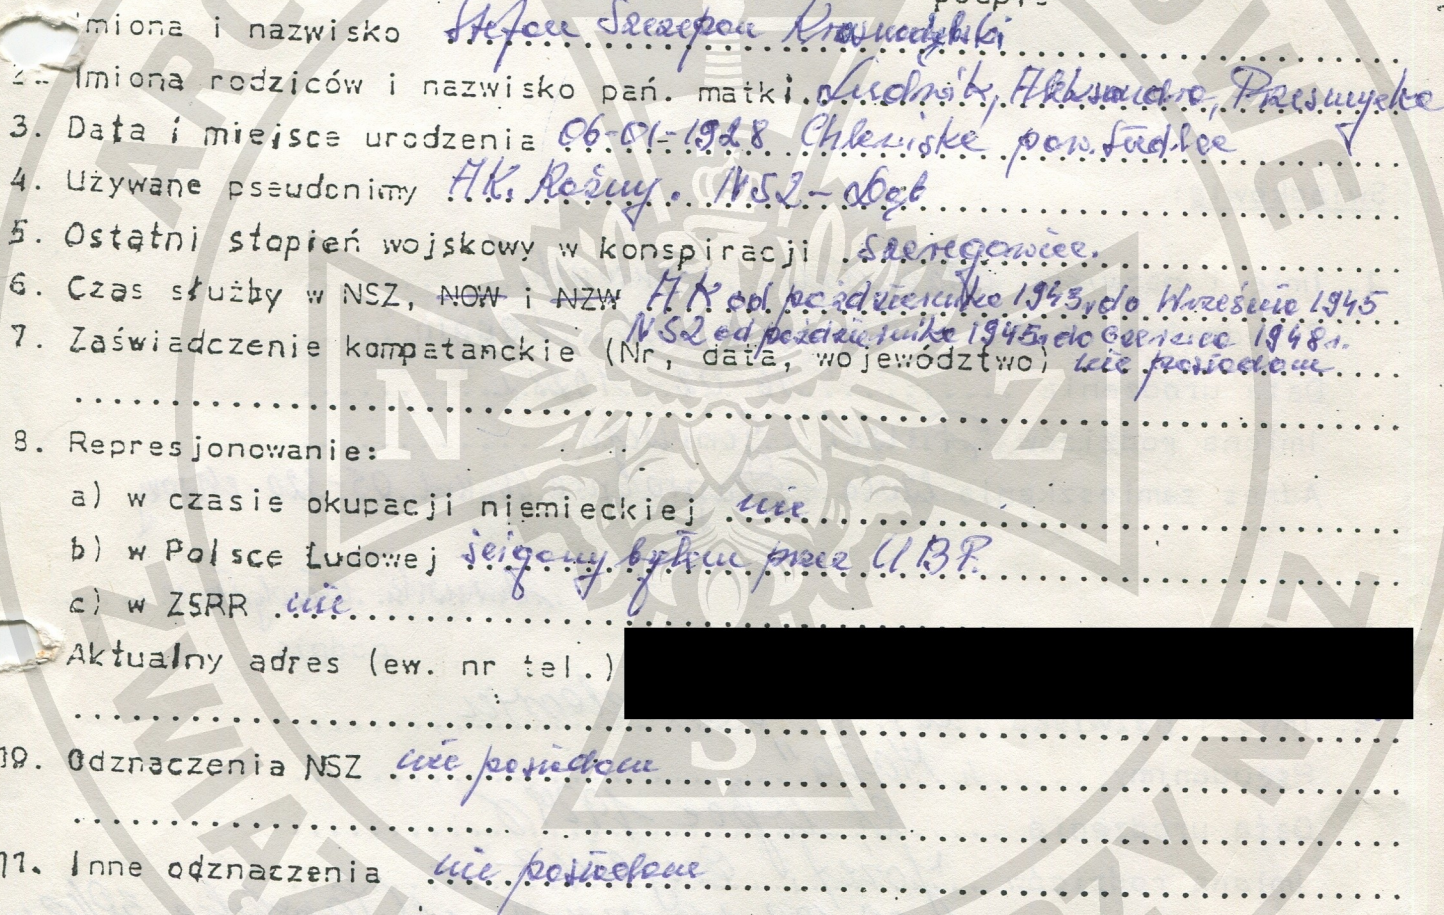 Imiona i nazwisko Stefan Szczepan Krasnodębski
2. Imiona rodziców i nazwisko pań. matki Ludwik, Aleksandra, Przesmycka
3. Data i miejsce urodzenia 06-01-1928 Chlewiska pow. Siedlce
4. Używane pseudonimy AK. Rośny. NSZ - Dąb
5. Ostatni stopień wojskowy w konspiracji szeregowiec.
6. Czas służby w NSZ, NOW i NZW AK od października 1943 r. do Września 1945
NSZ od października 1945r. do czerwca 1948r.
7. Zaświadczenie kompatanckie (Nr, data, województwo) nie posiadam
8. Represjonowanie:
a) w czasie okupacji niemieckiej nie
b) w Polsce Ludowej ścigany byłem przez UBP.
c) w ZSRR nie
Aktualny adres (ew. nr tel.)
10. Odznaczenia NSZ nie posiadam
11. Inne odznaczenia nie posiadam
N Z
S